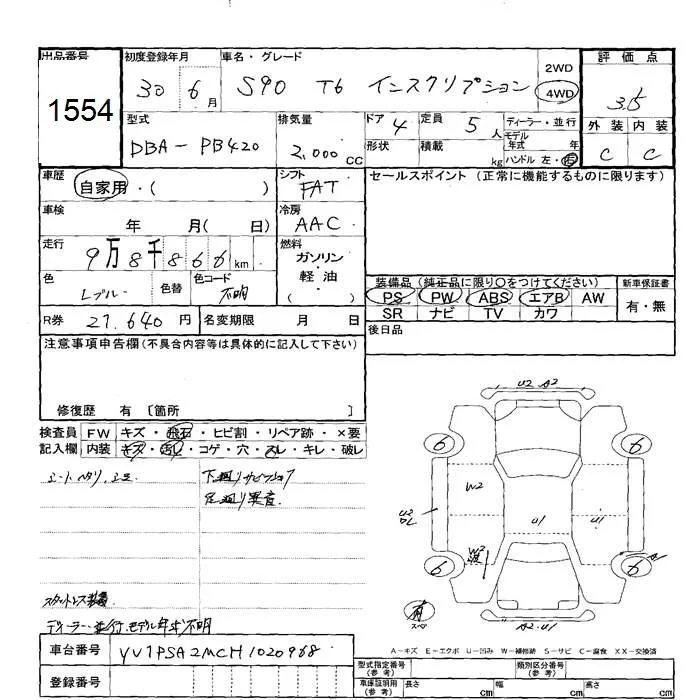 出品番号 初度登録年月 車名・グレード 2WD 評価点
1554 30 6月 S90 T6 インスクリプション 4WD 3.5
型式 排気量 ドア 4 定員 5人 ディーラー・並行 外装 内装
DBA-PB420 2,000cc 形状 積載 kg モデル年式 年 C C
ハンドル 左・右
車歴 自家用・( ) シフト FAT セールスポイント (正常に機能するものに限ります)
車検 年 月( 日) 冷房 AAC
走行 9万8千866km 燃料 ガソリン・軽油 ( )
色 Lブルー 色替 色コード 不明
装備品 (純正品に限り○をつけてください) 新車保証書
PS PW ABS エアB AW 有・無
SR ナビ TV カワ
R券 27,640円 名変期限 月 日
後日品
注意事項申告欄(不具合内容等は具体的に記入して下さい)
修復歴 有 〔箇所 〕
検査員 FW キズ・飛石・ヒビ割・リペア跡・×要
記入欄 内装 キズ・汚レ・コゲ・穴・スレ・キレ・破レ
下廻りサビ
足廻り異音
スタットレス装着
ディーラー・並行、モデル年式不明
U2 A2
6 6
W2
U2
U1 U1
W2
6 6 A
有
スペア
A2.U1
A-キズ E-エクボ U-凹み W-補修跡 S-サビ C-腐食 XX-交換済
車台番号 YV1PSA2MCH1020968
登録番号
型式指定番号(参考) 類別区分番号(参考)
車庫証明用(参考) 長さ cm 幅 cm 高さ cm